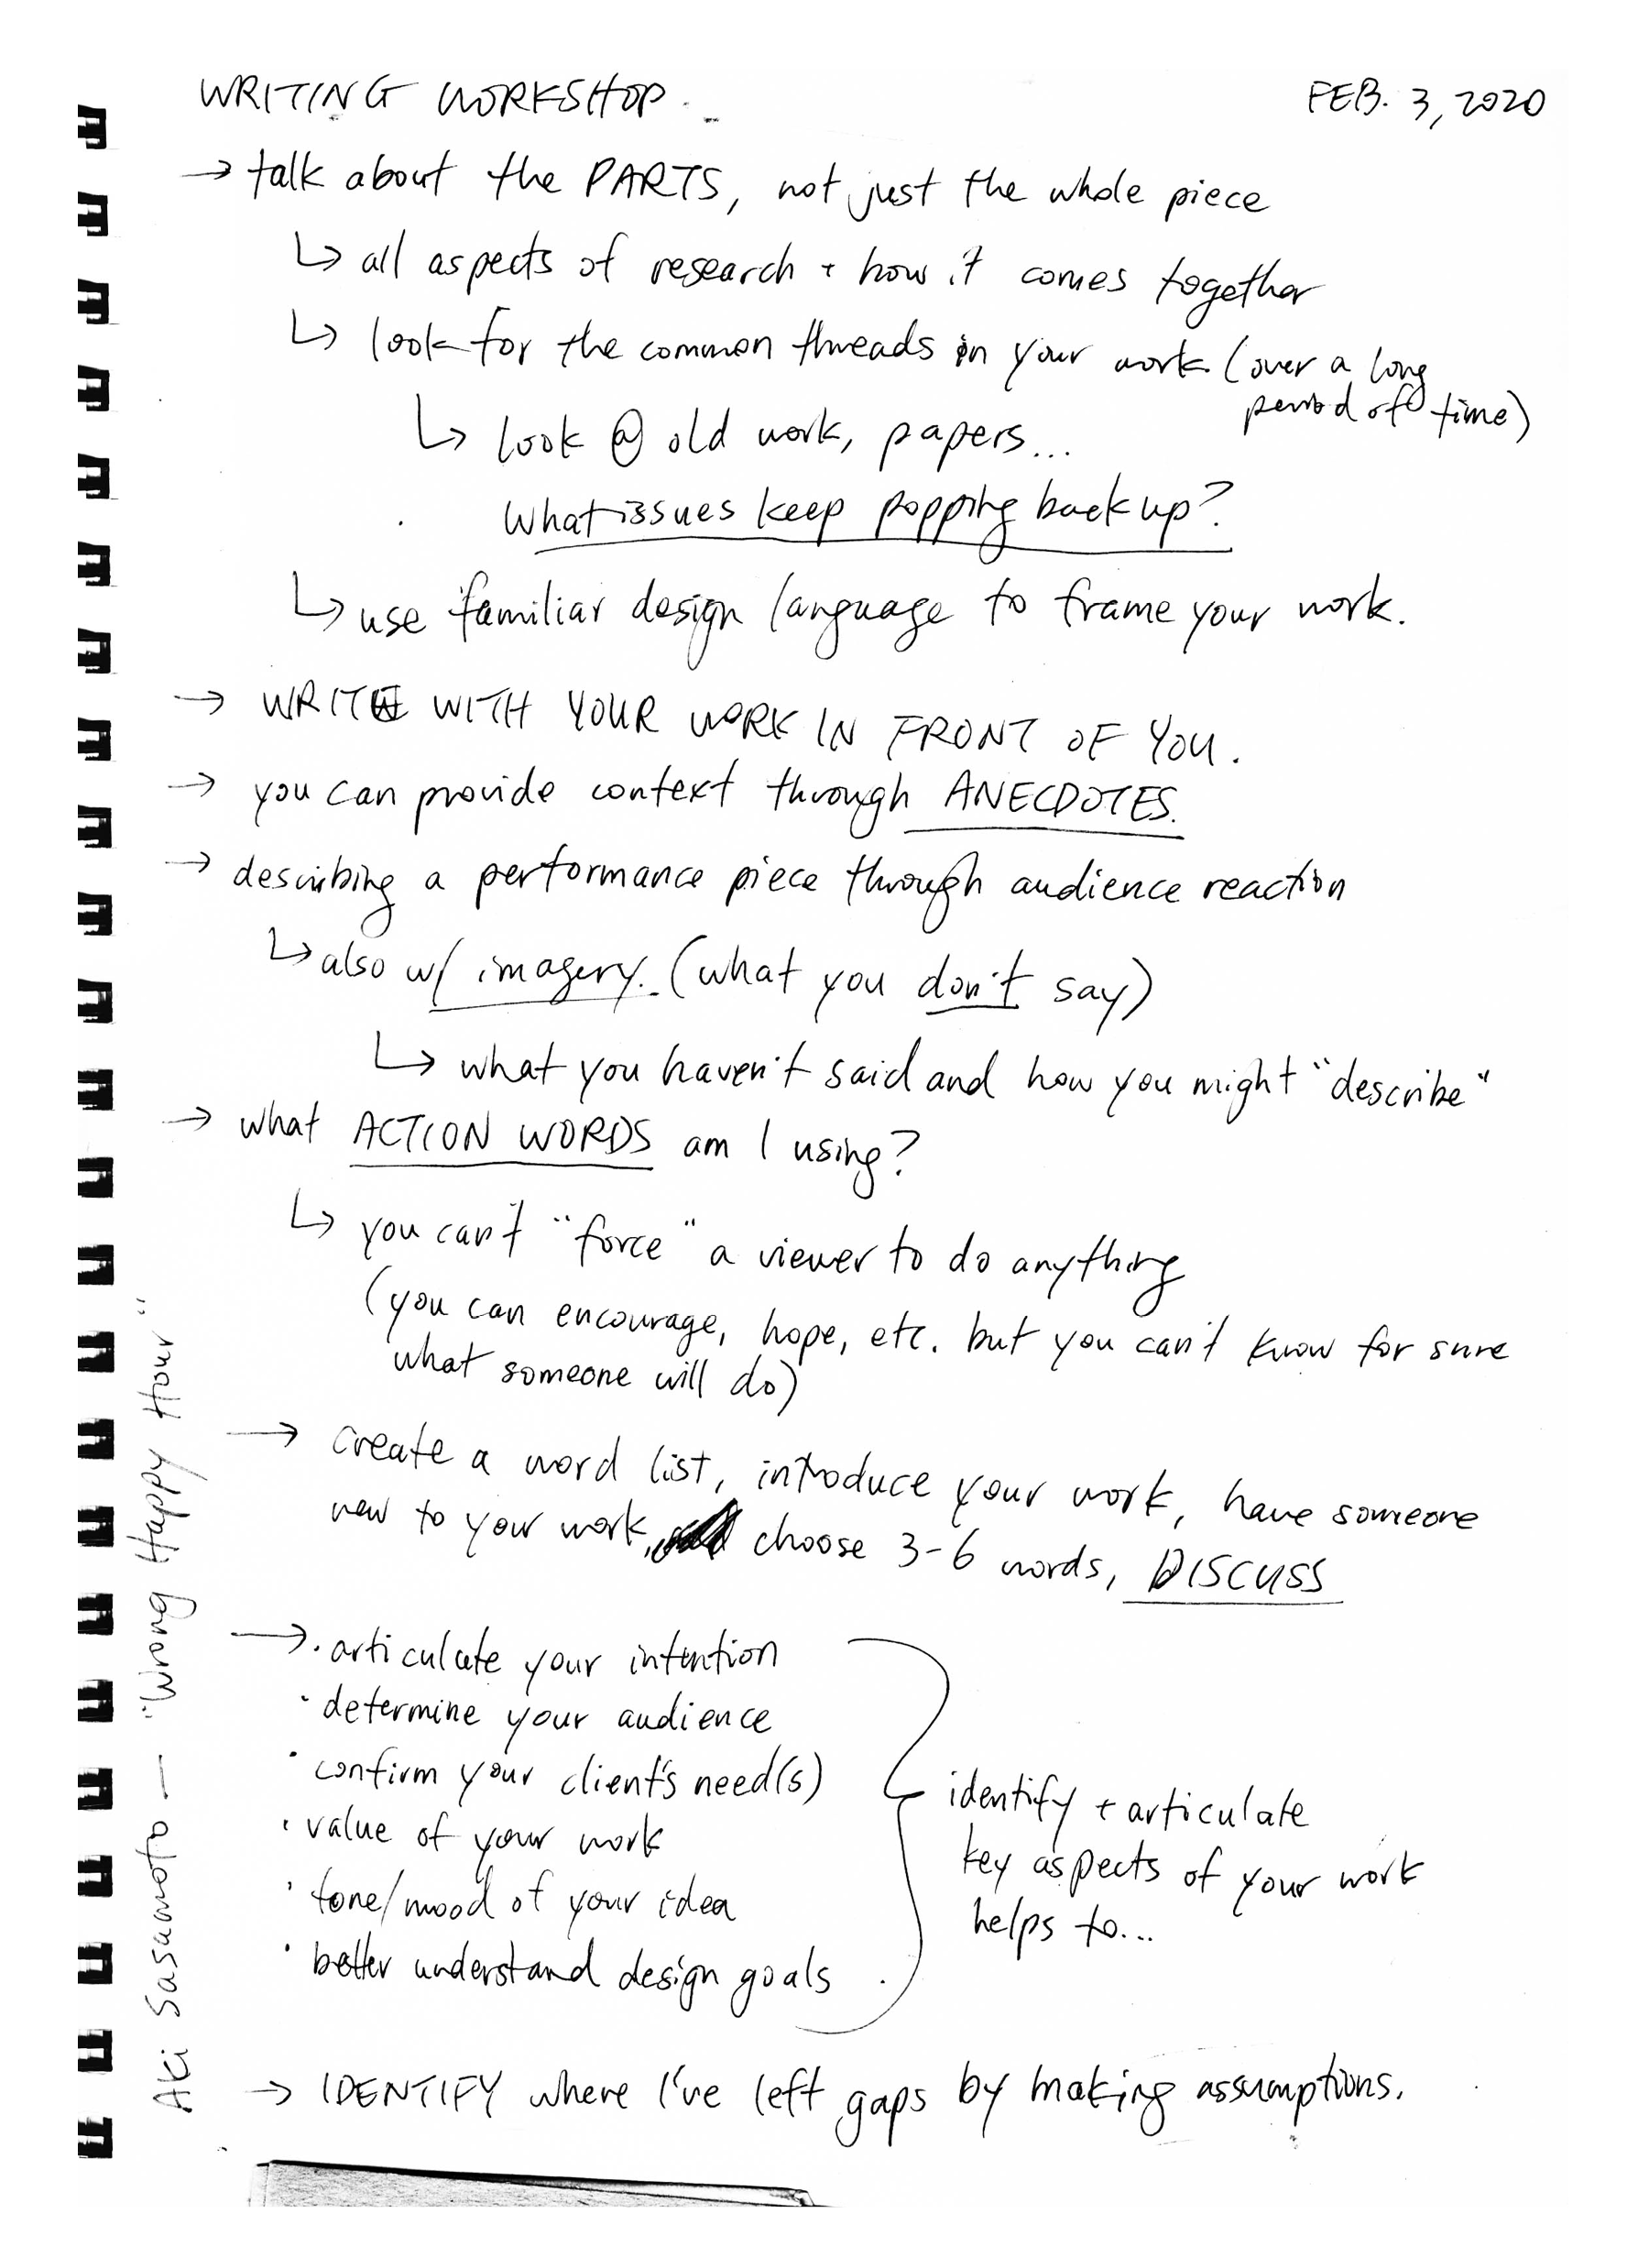 WRITING WORKSHOP.
FEB. 3, 2020
→ talk about the PARTS, not just the whole piece
↳ all aspects of research + how it comes together
↳ look for the common threads in your work (over a long
period of time)
↳ look @ old work, papers...
What issues keep popping back up?
↳ use familiar design language to frame your work.
→ WRITE WITH YOUR WORK IN FRONT OF YOU.
→ you can provide context through ANECDOTES.
→ describing a performance piece through audience reaction
↳ also w/ imagery. (what you don't say)
↳ what you haven't said and how you might "describe"
→ what ACTION WORDS am I using?
↳ you can't "force" a viewer to do anything
(you can encourage, hope, etc. but you can't know for sure
what someone will do)
→ create a word list, introduce your work, have someone
new to your work, choose 3-6 words, DISCUSS
→ · articulate your intention
· determine your audience
· confirm your client's need(s)
· value of your work
· tone/mood of your idea
· better understand design goals
identify + articulate
key aspects of your work
helps to...
→ IDENTIFY where I've left gaps by making assumptions.
Aki Sasamoto — "Wrong Happy Hour"